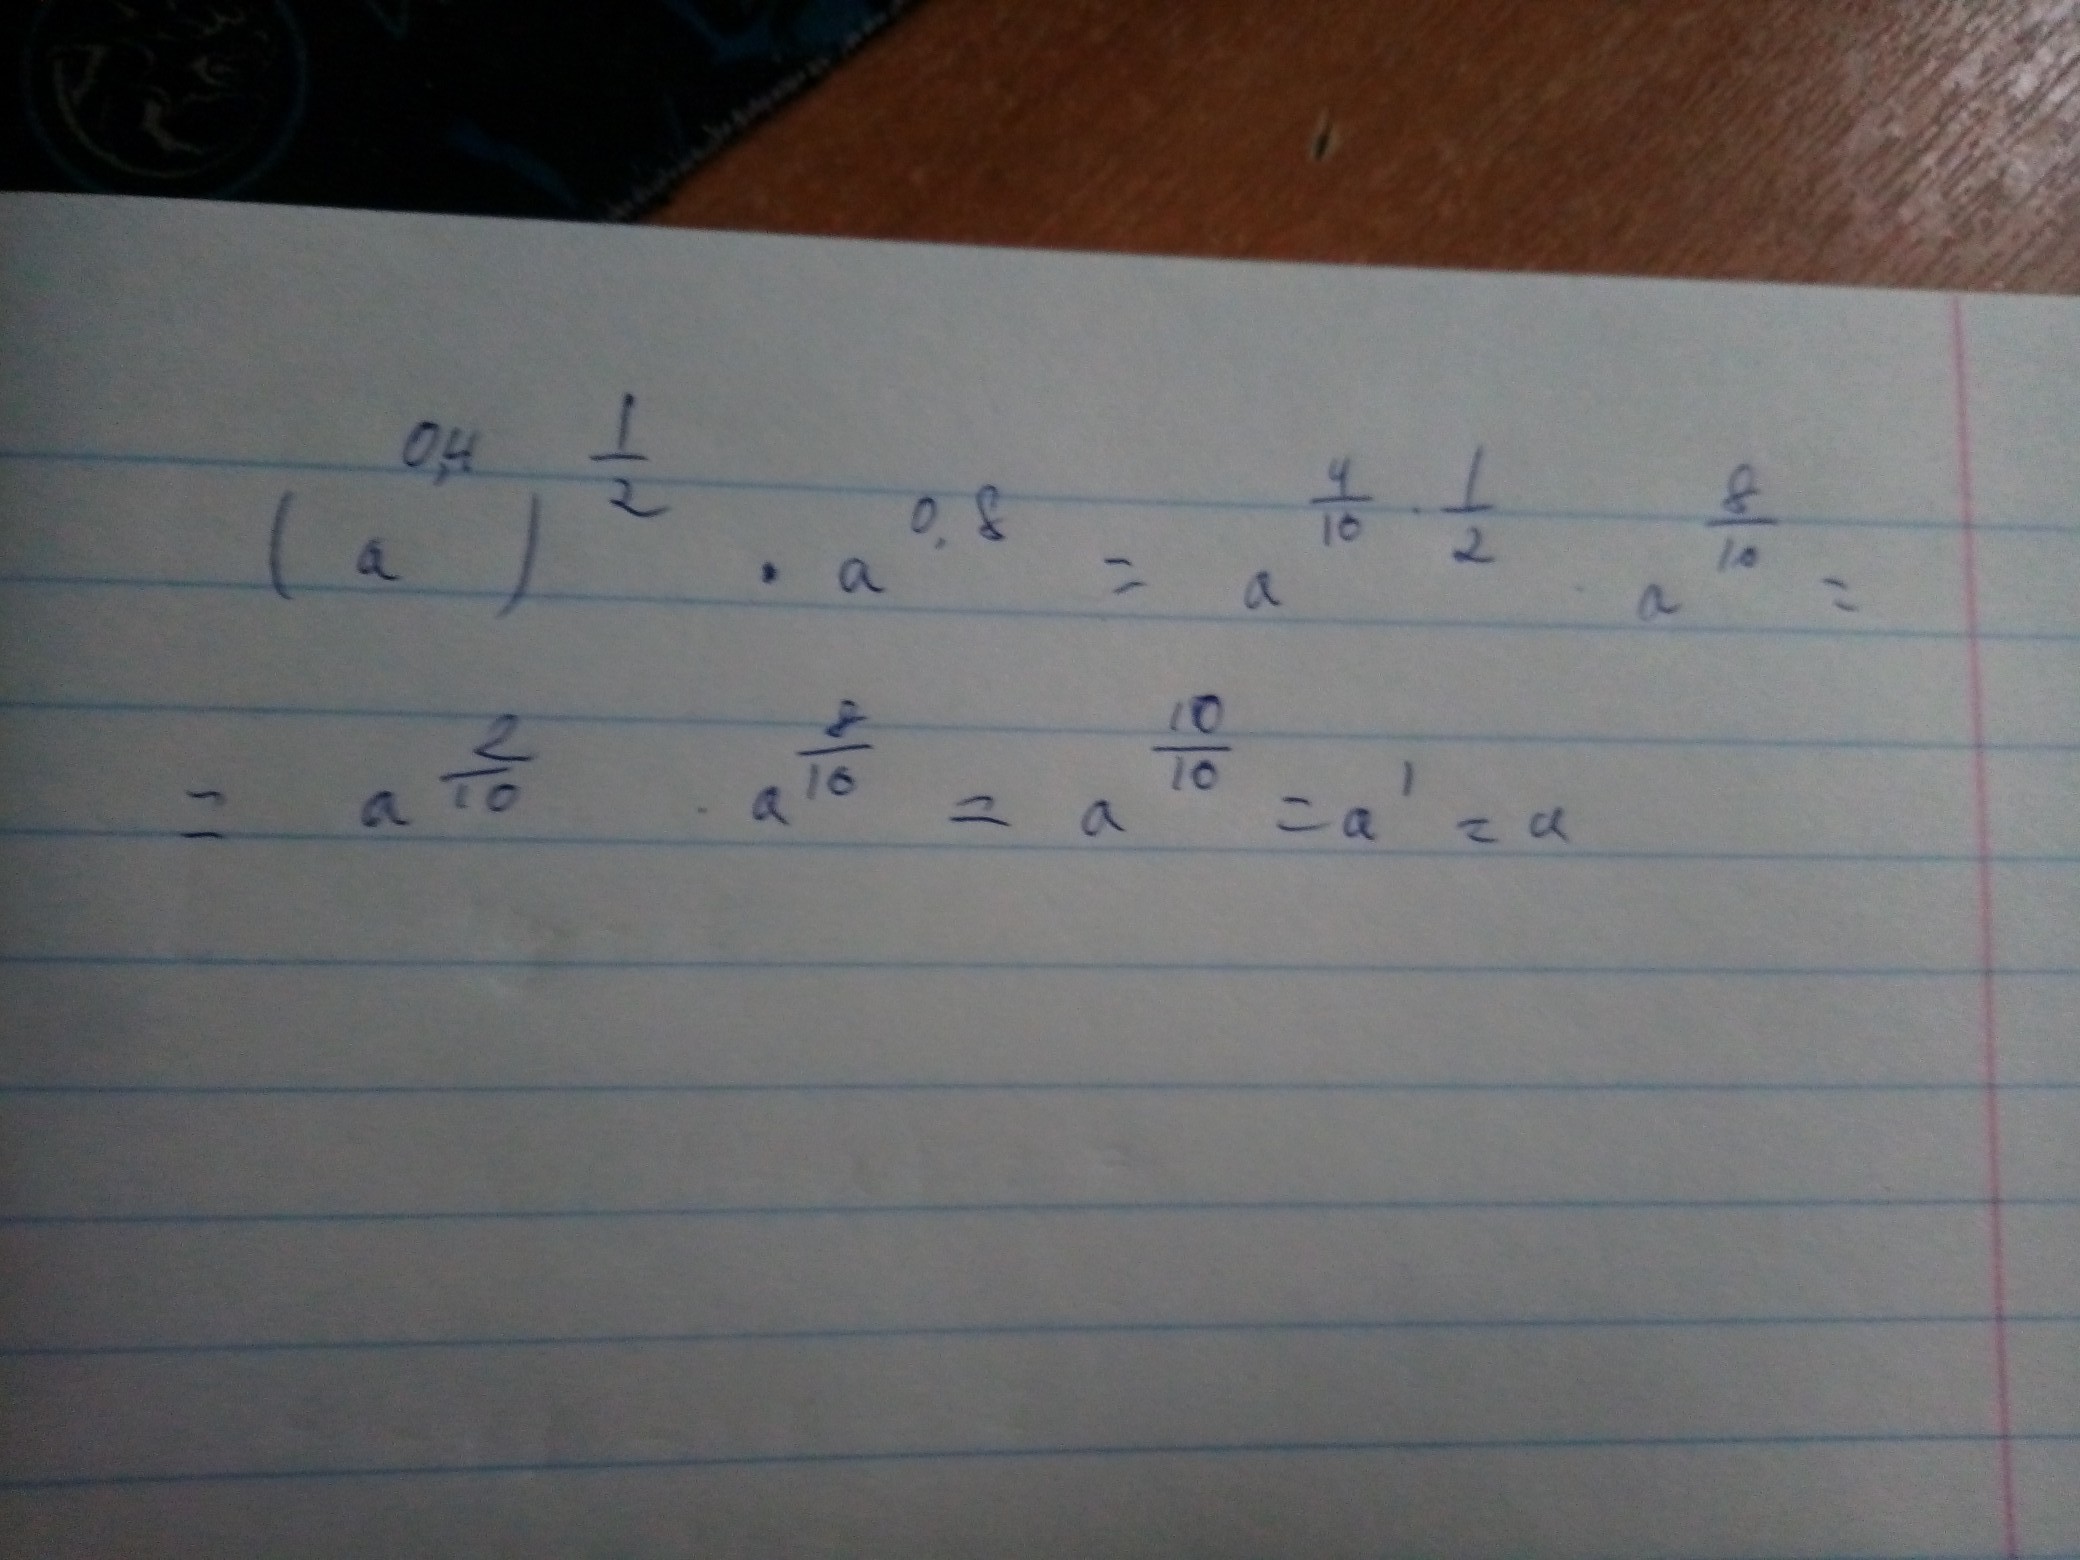 (a^{0,4})^{\frac{1}{2}} · a^{0,8} = a^{\frac{4}{10} · \frac{1}{2}} · a^{\frac{8}{10}} =
= a^{\frac{2}{10}} · a^{\frac{8}{10}} = a^{\frac{10}{10}} = a^1 = a